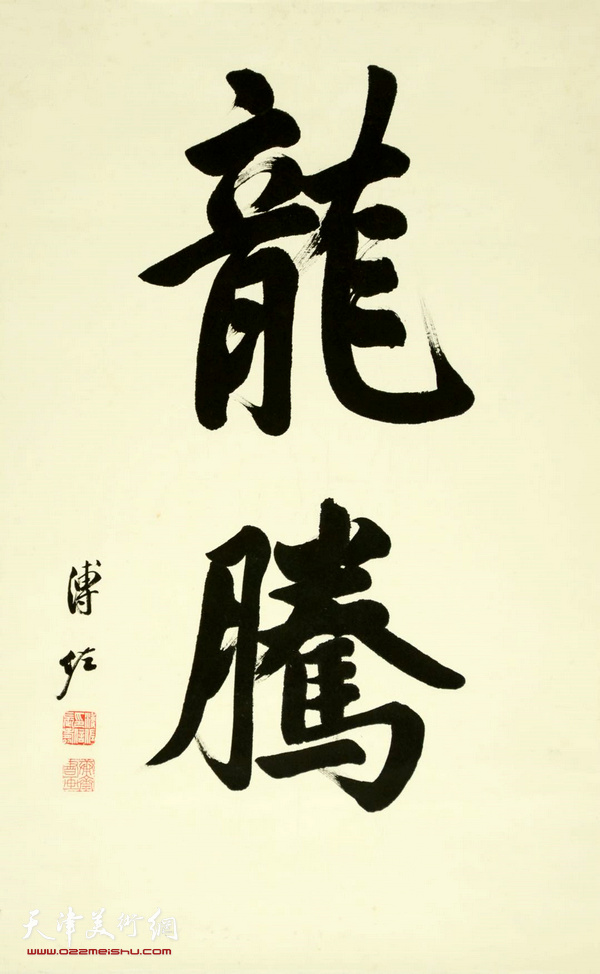 龍騰
溥佐
天津美術網
www.022meishu.com